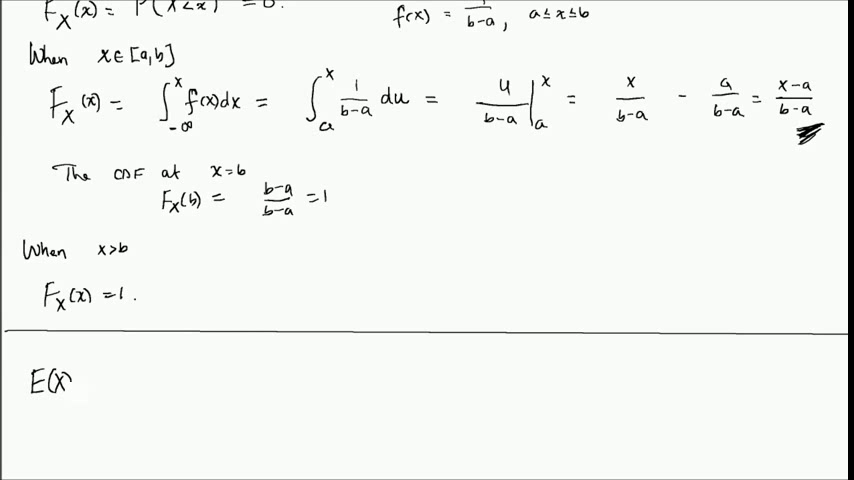 F_X(x) = P(X<x) = 0. f(x) = 1/(b-a), a≤x≤b
When x∈[a,b]
F_X(x) = ∫_{-∞}^{x} f(x)dx = ∫_{a}^{x} 1/(b-a) du = u/(b-a) |_{a}^{x} = x/(b-a) - a/(b-a) = (x-a)/(b-a)
The CDF at x=b
F_X(b) = (b-a)/(b-a) = 1
When x>b
F_X(x) = 1.
E(X)